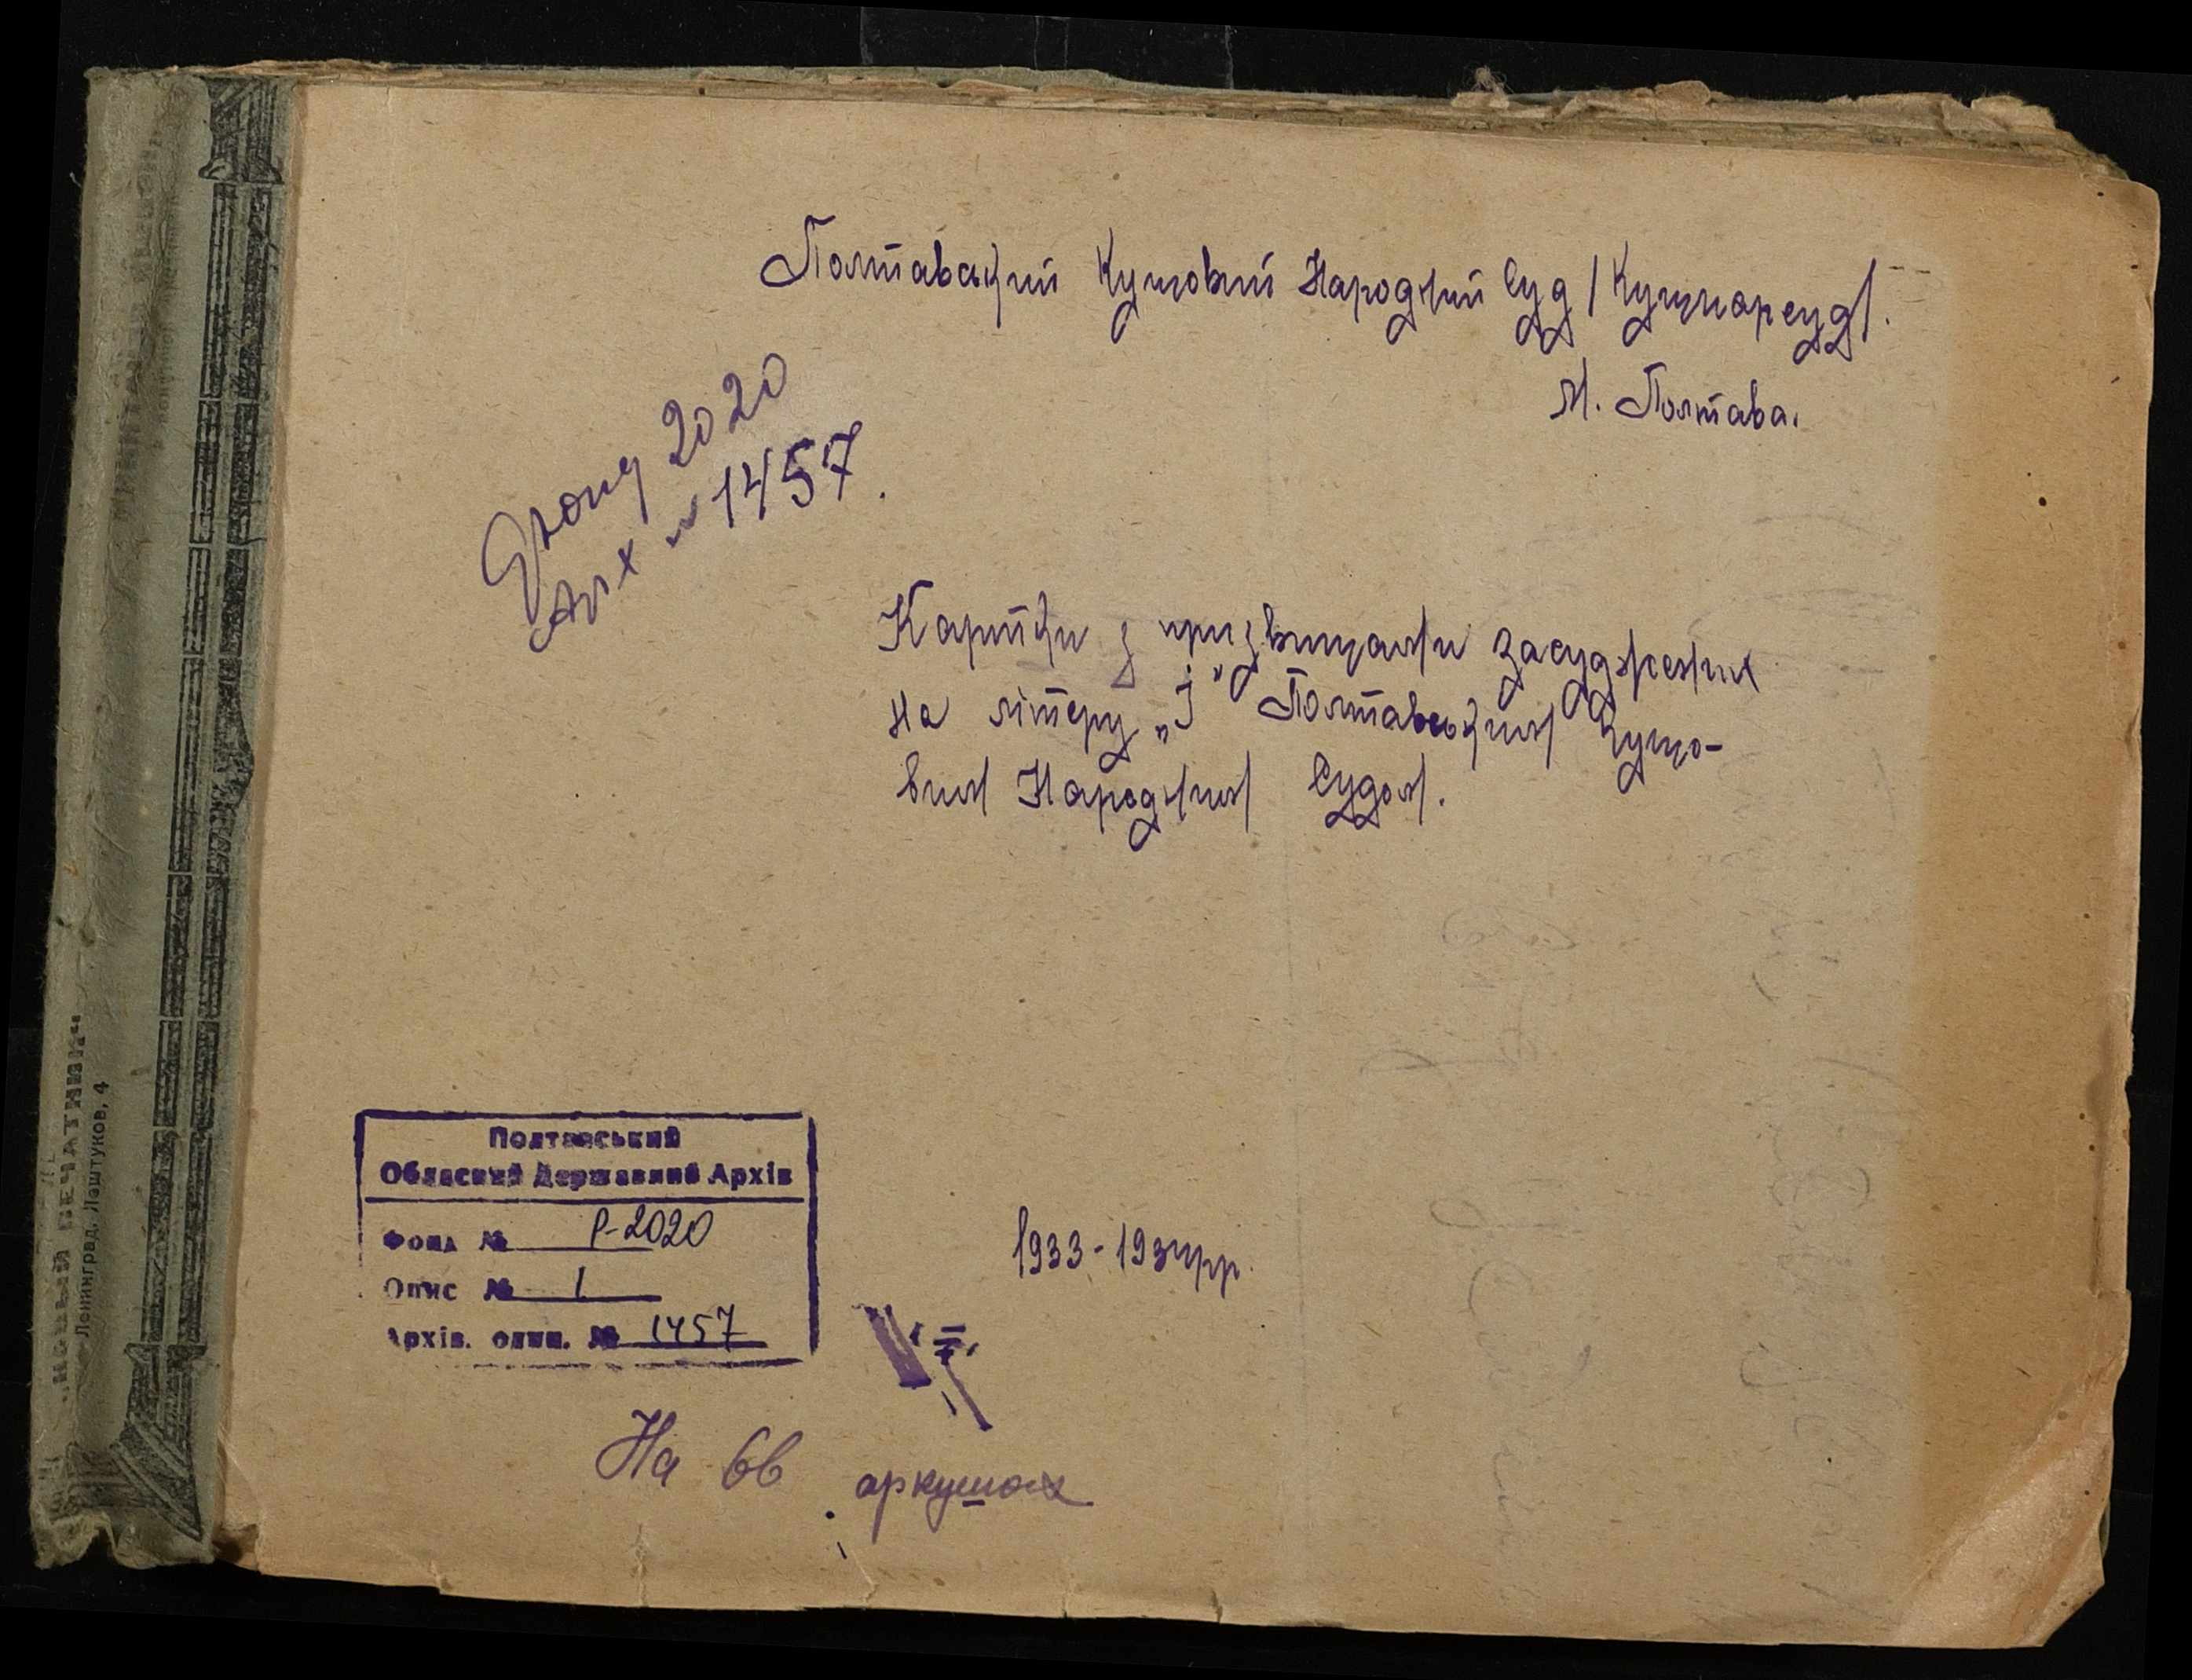 Полтавський Кущовий Народній Суд /Кущнарсуд/.
М. Полтава.
Фонд 2020
Арх № 1457.
Картки з призвищами засуджених
на літеру „І" Полтавським Кущо-
вим Народнім Судом.
Полтавський
Обласний Державний Архів
Фонд № Р-2020
Опис № 1
Архів. один. № 1457
1933-1934рр.
На 66 аркушах
„НОВЫЙ ПЕЧАТНИК"
Ленинград, Лештуков, 4